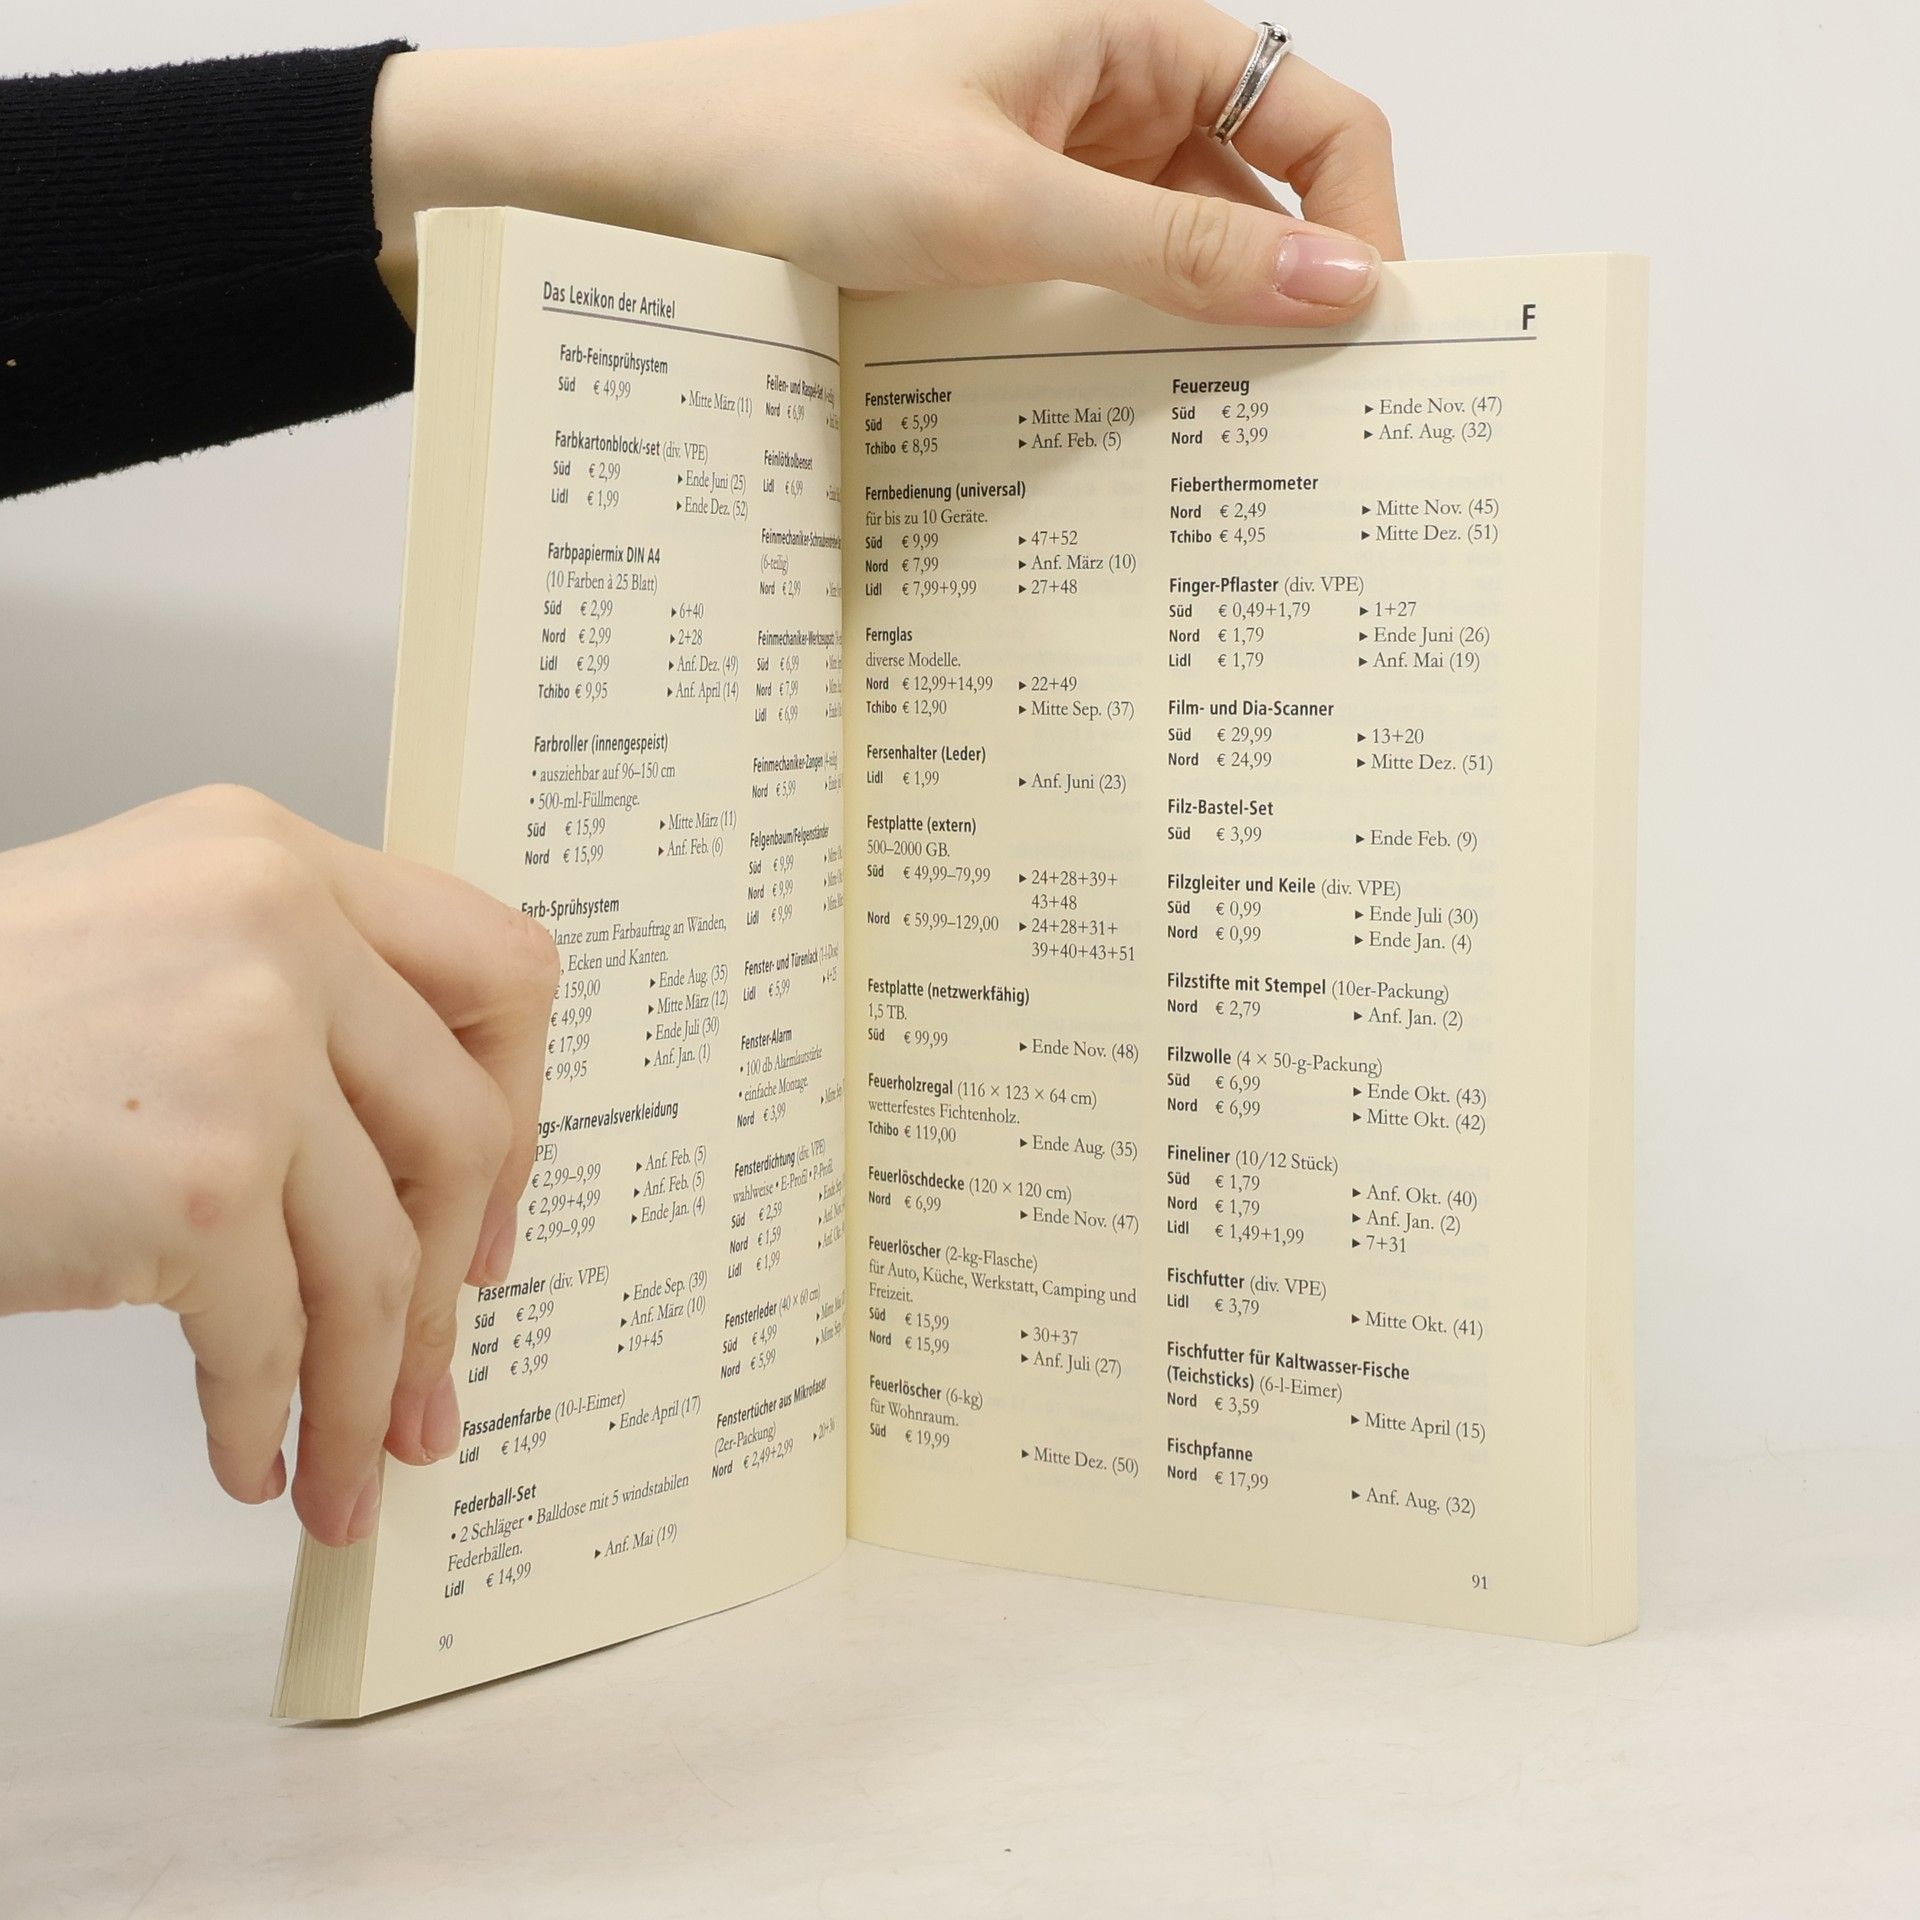 Das Lexikon der Artikel
Farb-Feinsprühsystem
Süd € 49,99 ▸ Mitte März (11)
Farbkartonblock/-set (div. VPE)
Süd € 2,99 ▸ Ende Juni (25)
Lidl € 1,99 ▸ Ende Dez. (52)
Farbpapiermix DIN A4
(10 Farben à 25 Blatt)
Süd € 2,99 ▸ 6+40
Nord € 2,99 ▸ 2+28
Lidl € 2,99 ▸ Anf. Dez. (49)
Tchibo € 9,95 ▸ Anf. April (14)
Farbroller (innengespeist)
• ausziehbar auf 96–150 cm
• 500-ml-Füllmenge.
Süd € 15,99 ▸ Mitte März (11)
Nord € 15,99 ▸ Anf. Feb. (6)
Farb-Sprühsystem
zum Farbauftrag an Wänden,
Ecken und Kanten.
€ 159,00 ▸ Ende Aug. (35)
€ 49,99 ▸ Mitte März (12)
€ 17,99 ▸ Ende Juli (30)
€ 99,95 ▸ Anf. Jan. (1)
ngs-/Karnevalsverkleidung
PE)
€ 2,99–9,99 ▸ Anf. Feb. (5)
€ 2,99+4,99 ▸ Anf. Feb. (5)
€ 2,99–9,99 ▸ Ende Jan. (4)
Fasermaler (div. VPE)
Süd € 2,99 ▸ Ende Sep. (39)
Nord € 4,99 ▸ Anf. März (10)
Lidl € 3,99 ▸ 19+45
Fassadenfarbe (10-l-Eimer)
Lidl € 14,99 ▸ Ende April (17)
Federball-Set
• 2 Schläger • Balldose mit 5 windstabilen
Federbällen.
Lidl € 14,99 ▸ Anf. Mai (19)
Feilen- und Raspel-Set
Nord € 6,99
Feinlötkolbenset
Lidl € 6,99
(6-teilig)
Nord € 2,99
Feinmechaniker-Werkzeugsatz
Süd € 6,99
Nord € 7,99
Lidl € 6,99
Feinmechaniker-Zangen
Nord € 5,99
Felgenbaum/Felgenständer
Süd € 9,99
Nord € 9,99
Lidl € 9,99
Fenster- und Türenlack
Lidl € 5,99 ▸ 4+25
Fenster-Alarm
• 100 db Alarmlautstärke
• einfache Montage.
Nord € 3,99
Fensterdichtung (div. VPE)
wahlweise • E-Profil • P-Profil.
Süd € 2,59
Nord € 1,59
Lidl € 1,99
Fensterleder (40 × 60 cm)
Süd € 4,99
Nord € 5,99
Fenstertücher aus Mikrofaser
(2er-Packung)
Nord € 2,49+2,99 ▸ 20+36
90
F
Fensterwischer
Süd € 5,99 ▸ Mitte Mai (20)
Tchibo € 8,95 ▸ Anf. Feb. (5)
Fernbedienung (universal)
für bis zu 10 Geräte.
Süd € 9,99 ▸ 47+52
Nord € 7,99 ▸ Anf. März (10)
Lidl € 7,99+9,99 ▸ 27+48
Fernglas
diverse Modelle.
Nord € 12,99+14,99 ▸ 22+49
Tchibo € 12,90 ▸ Mitte Sep. (37)
Fersenhalter (Leder)
Lidl € 1,99 ▸ Anf. Juni (23)
Festplatte (extern)
500–2000 GB.
Süd € 49,99–79,99 ▸ 24+28+39+
43+48
Nord € 59,99–129,00 ▸ 24+28+31+
39+40+43+51
Festplatte (netzwerkfähig)
1,5 TB.
Süd € 99,99 ▸ Ende Nov. (48)
Feuerholzregal (116 × 123 × 64 cm)
wetterfestes Fichtenholz.
Tchibo € 119,00 ▸ Ende Aug. (35)
Feuerlöschdecke (120 × 120 cm)
Nord € 6,99 ▸ Ende Nov. (47)
Feuerlöscher (2-kg-Flasche)
für Auto, Küche, Werkstatt, Camping und
Freizeit.
Süd € 15,99 ▸ 30+37
Nord € 15,99 ▸ Anf. Juli (27)
Feuerlöscher (6-kg)
für Wohnraum.
Süd € 19,99 ▸ Mitte Dez. (50)
Feuerzeug
Süd € 2,99 ▸ Ende Nov. (47)
Nord € 3,99 ▸ Anf. Aug. (32)
Fieberthermometer
Nord € 2,49 ▸ Mitte Nov. (45)
Tchibo € 4,95 ▸ Mitte Dez. (51)
Finger-Pflaster (div. VPE)
Süd € 0,49+1,79 ▸ 1+27
Nord € 1,79 ▸ Ende Juni (26)
Lidl € 1,79 ▸ Anf. Mai (19)
Film- und Dia-Scanner
Süd € 29,99 ▸ 13+20
Nord € 24,99 ▸ Mitte Dez. (51)
Filz-Bastel-Set
Süd € 3,99 ▸ Ende Feb. (9)
Filzgleiter und Keile (div. VPE)
Süd € 0,99 ▸ Ende Juli (30)
Nord € 0,99 ▸ Ende Jan. (4)
Filzstifte mit Stempel (10er-Packung)
Nord € 2,79 ▸ Anf. Jan. (2)
Filzwolle (4 × 50-g-Packung)
Süd € 6,99 ▸ Ende Okt. (43)
Nord € 6,99 ▸ Mitte Okt. (42)
Fineliner (10/12 Stück)
Süd € 1,79 ▸ Anf. Okt. (40)
Nord € 1,79 ▸ Anf. Jan. (2)
Lidl € 1,49+1,99 ▸ 7+31
Fischfutter (div. VPE)
Lidl € 3,79 ▸ Mitte Okt. (41)
Fischfutter für Kaltwasser-Fische
(Teichsticks) (6-l-Eimer)
Nord € 3,59 ▸ Mitte April (15)
Fischpfanne
Nord € 17,99 ▸ Anf. Aug. (32)
91